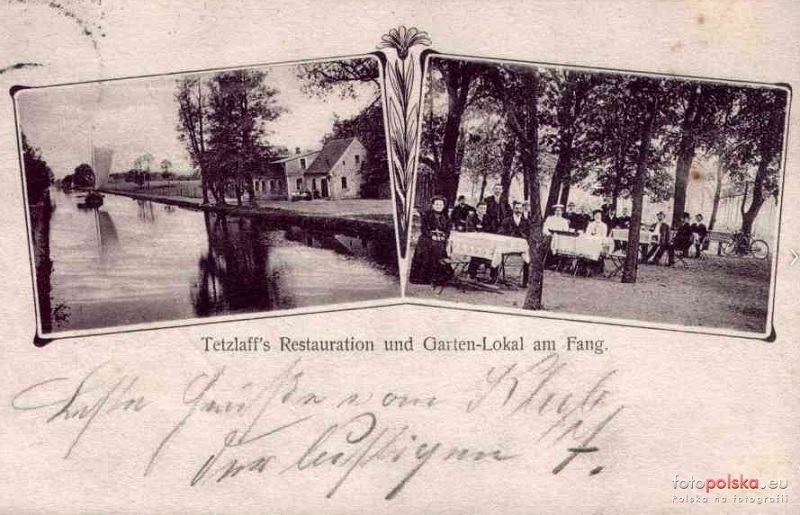 Tetzlaff's Restauration und Garten-Lokal am Fang.
Beste Grüße vom Klub
der lustigen 17.
fotopolska.eu
Polska na fotografii